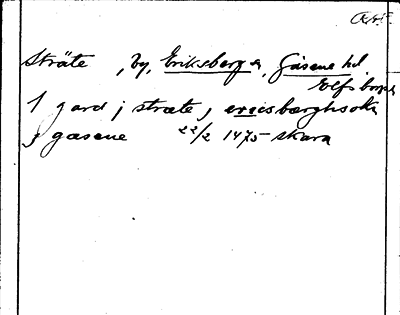 Sträte, by, Eriksbergs, Gäsene hd
Elfsborgs
1 gard j stræte j ericsbærghsokn
j gæsene 22/2 1475 Skara